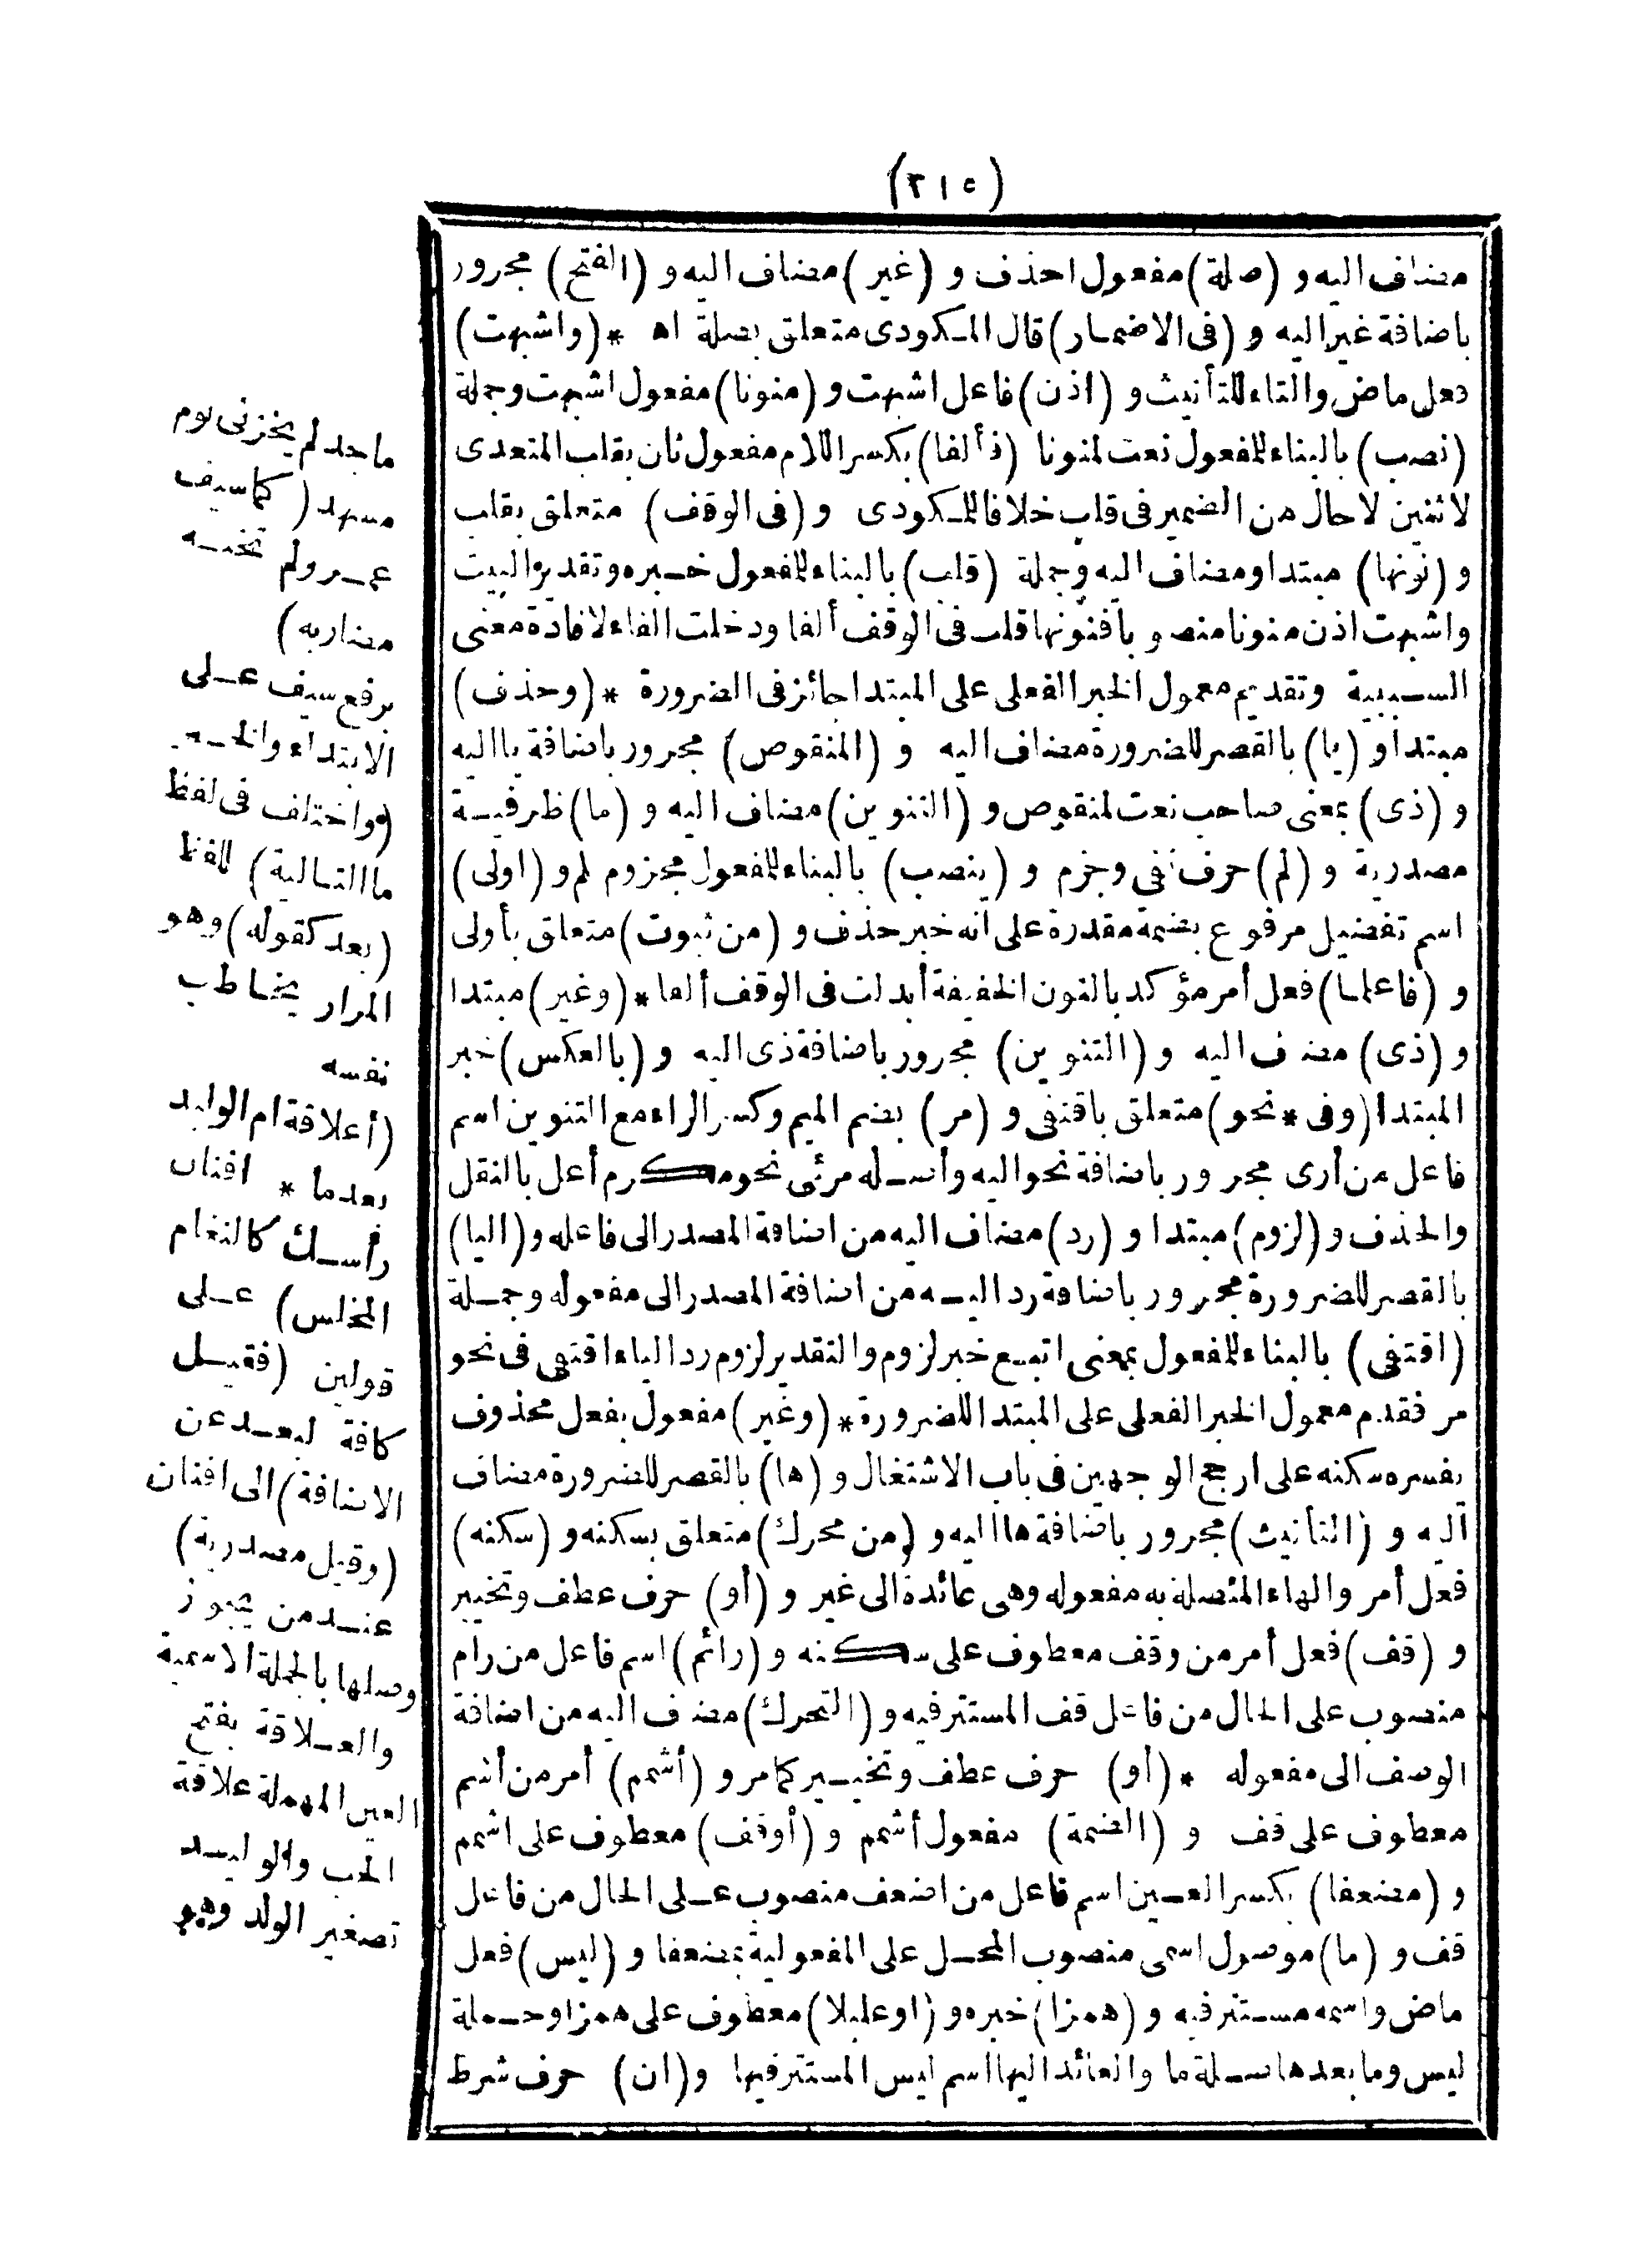 (٢١٥)
مضاف اليه و (صلة) مفعول احذف و (غير) مضاف اليه و (الفتح) مجرور
باضافة غير اليه و (فى الاضمار) قال المكودى متعلق بصلة اه * (واشبهت)
فعل ماض والتاء للتأنيث و (اذن) فاعل اشبهت و (منونا) مفعول اشبهت وجملة
(نصب) بالبناء للمفعول نعت لمنونا (فألفا) بكسر اللام مفعول ثان بقلب المتعدى
لاثنين لا حال من الضمير فى قلب خلافا للمكودى و (فى الوقف) متعلق بقلب
و (نونها) مبتدا ومضاف اليه وجملة (قلب) بالبناء للمفعول خبره وتقدير البيت
واشبهت اذن منونا منصوبا فنونها قلب فى الوقف ألفا ودخلت الفاء لافادة معنى
السببية وتقديم معمول الخبر الفعلى على المبتدا جائز فى الضرورة * (وحذف)
مبتدأ و (يا) بالقصر للضرورة مضاف اليه و (المنقوص) مجرور باضافة يا اليه
و (ذى) بمعنى صاحب نعت لمنقوص و (التنوين) مضاف اليه و (ما) ظرفية
مصدرية و (لم) حرف نفى وجزم و (ينصب) بالبناء للمفعول مجزوم لم و (اولى)
اسم تفضيل مرفوع بضمة مقدرة على انه خبر حذف و (من ثبوت) متعلق بأولى
و (فاعلما) فعل أمر مؤكد بالنون الخفيفة أبدلت فى الوقف ألفا * (وغير) مبتدا
و (ذى) مضاف اليه و (التنوين) مجرور باضافة ذى اليه و (بالعكس) خبر
المبتدا (وفى * نحو) متعلق باقتفى و (مر) بضم الميم وكسر الراء مع التنوين اسم
فاعل من أرى مجرور باضافة نحو اليه وأصله مرئى نحو مكرم أعل بالنقل
والحذف و (لزوم) مبتدا و (رد) مضاف اليه من اضافة المصدر الى فاعله و (اليا)
بالقصر للضرورة مجرور باضافة رد اليه من اضافة المصدر الى مفعوله وجملة
(اقتفى) بالبناء للمفعول بمعنى اتبع خبر لزوم والتقدير لزوم رد الياء اقتفى فى نحو
مر فقدم معمول الخبر الفعلى على المبتدا للضرورة * (وغير) مفعول بفعل محذوف
يفسره سكنه على ارجح الوجهين فى باب الاشتغال و (ها) بالقصر للضرورة مضاف
اليه و (التأنيث) مجرور باضافة ها اليه و (من محرك) متعلق بسكنه و (سكنه)
فعل أمر والهاء المتصلة به مفعوله وهى عائدة الى غير و (أو) حرف عطف وتخيير
و (قف) فعل أمر من وقف معطوف على سكنه و (رائم) اسم فاعل من رام
منصوب على الحال من فاعل قف المستتر فيه و (التحرك) مضاف اليه من اضافة
الوصف الى مفعوله * (أو) حرف عطف وتخيير كما مر و (أشمم) أمر من أشم
معطوف على قف و (الضمة) مفعول أشمم و (أوقف) معطوف على اشمم
و (مضعفا) بكسر العين اسم فاعل من اضعف منصوب على الحال من فاعل
قف و (ما) موصول اسمى منصوب المحل على المفعولية بمضعفا و (ليس) فعل
ماض واسمه مستتر فيه و (همزا) خبره و (او عليلا) معطوف على همزا وجملة
ليس وما بعدها صلة ما والعائد اليها اسم ليس المستتر فيها و (ان) حرف شرط
ماجد لم يخزنى يوم
مشهد (كما سيف
عمرو لم تخنه
مضاربه)
برفع سيف على
الابتداء والخبر
(واختلف فى لفظ
ما التالية) للفظ
(بعد كقوله) وهو
المرار يخاطب
نفسه
(أعلاقة ام الوليد
بعدما * افنان
رأسك كالثغام
المخلس) على
قولين (فقيل
كافة لبعد عن
الاضافة) الى افنان
(وقيل مصدرية)
عند من يجوز
وصلها بالجملة الاسمية
والعلاقة بفتح
العين المهملة علاقة
الحب والوليد
تصغير الولد وهو